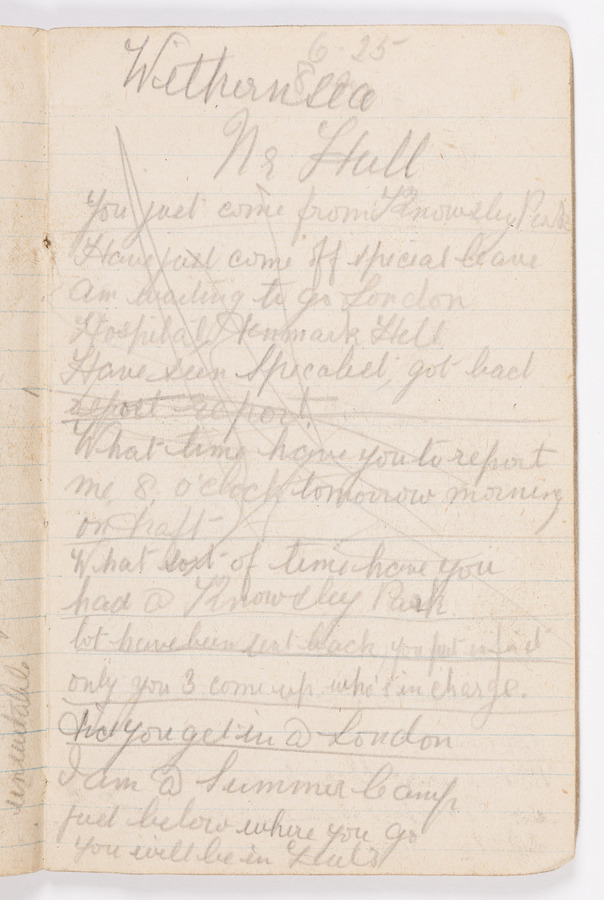 6-25
8
Withernsea
Nr Hull
You just come from Knowsley Park
Have just come off special leave
am waiting to go London
Hospital, Denmark Hill
Have seen Specalist, got bad
report report
What time have you to report
me, 8, o'clock tomorrow morning
or draft
What sort of time have you
had @ Knowsley Park
lot have been sent back, you put in
only you 3 come up who's in charge.
Did you get in @ London
I am @ Summer Camp
just below where you go
You will be in Huts